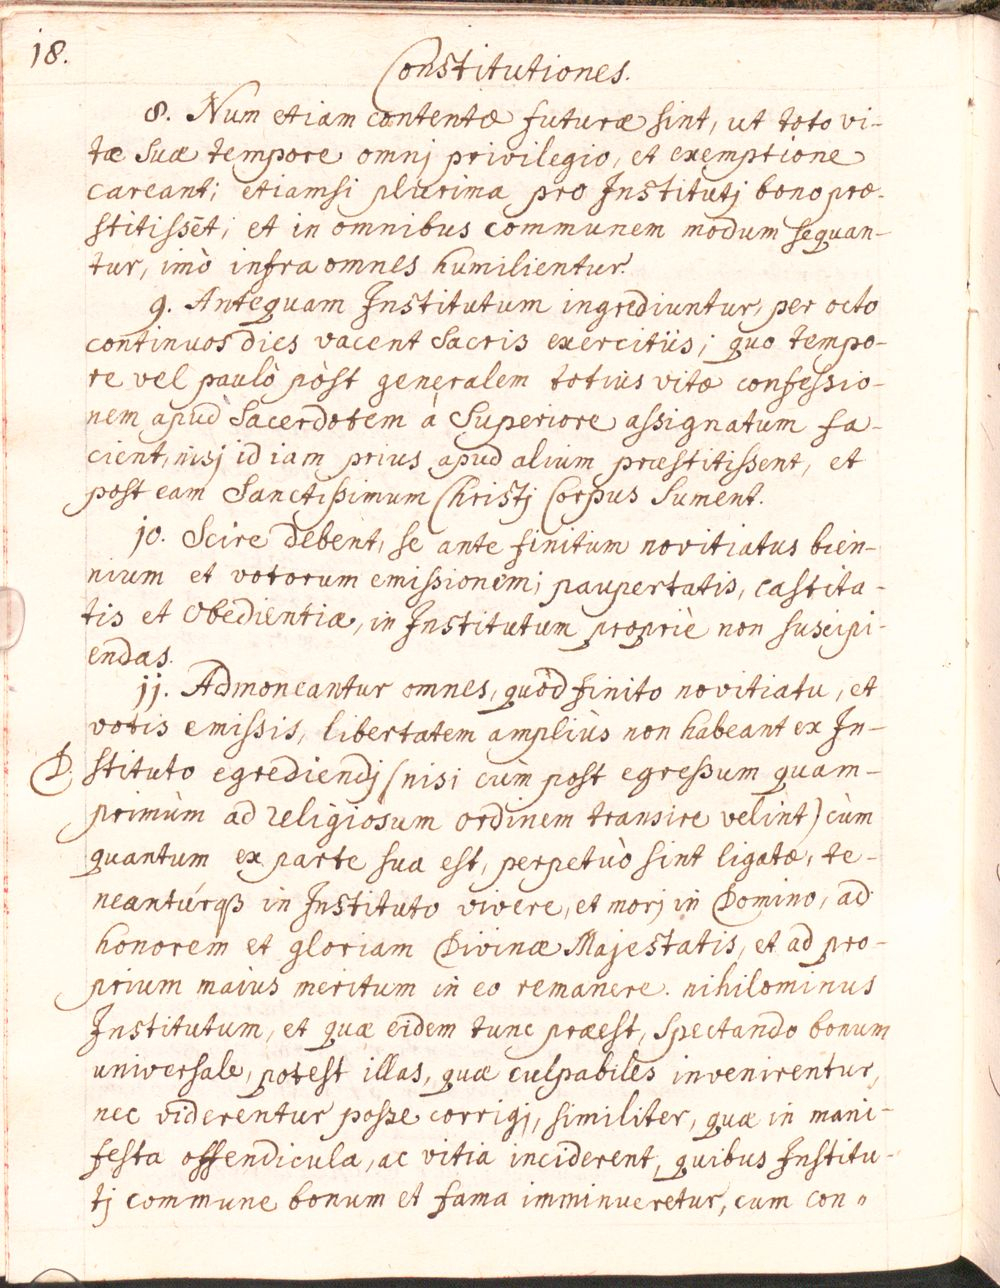 18.
Constitutiones.
8. Num etiam contentæ futuræ sint, ut toto vi-
tæ suæ tempore omnj privilegio, et exemptione
careant; etiamsi plurima pro Institutj bono præ-
stitissēt; et in omnibus communem modum sequan-
tur, imò infra omnes humilientur.
9. Antequam Institutum ingrediuntur, per octo
continuos dies vacent sacris exercitiis; quo tempo-
re vel paulò pòst generalem totius vitæ confessio-
nem apud Sacerdotem à Superiore assignatum fa-
cient, nisj id iam prius apud alium præstitissent, et
post eam Sanctissimum Christj Corpus sument.
10. Scire debent, se ante finitum novitiatus bien-
nium et votorum emissionem; paupertatis, castita-
tis et Obedientiæ, in Institutum propriè non suscipi-
endas.
11. Admoneantur omnes, quòd finito novitiatu, et
votis emissis, libertatem ampliùs non habeant ex In-
D. stituto egrediendj (nisi cùm post egressum quam-
primùm ad religiosum ordinem transire velint) cùm
quantum ex parte sua est, perpetuò sint ligatæ, te-
neantúrqß in Instituto vivere, et morj in Domino, ad
honorem et gloriam Divinæ Majestatis, et ad pro-
prium maius meritum in eo remanere. nihilominus
Institutum, et quæ eidem tunc præest, spectando bonum
universale, potest illas, quæ culpabiles invenirentur,
nec viderentur posse corrigj, similiter, quæ in mani-
festa offendicula, ac vitia inciderent, quibus Institu-
tj commune bonum et fama imminueretur, cum con-